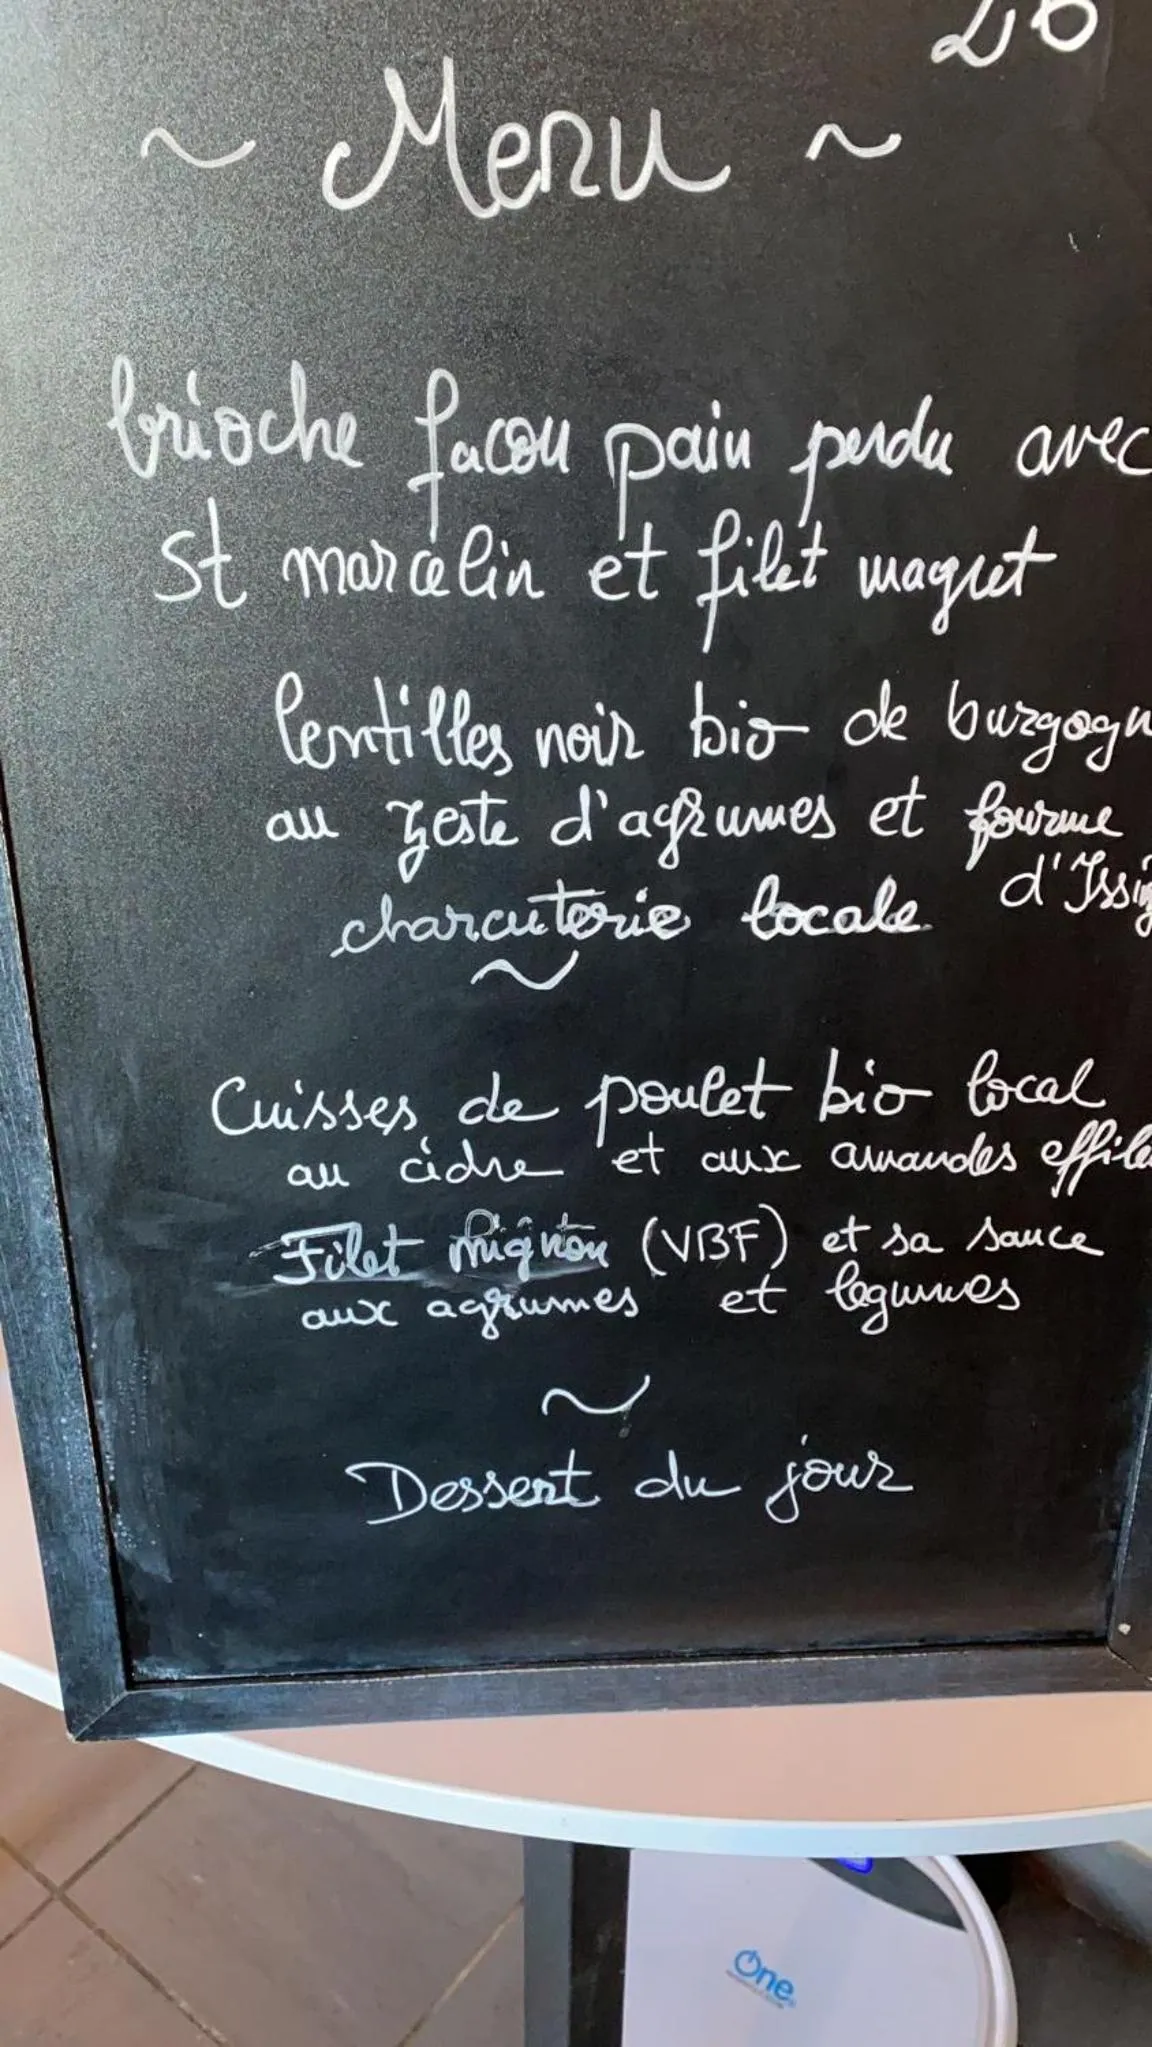 26
~ Menu ~
brioche facon pain perdu avec
st marcelin et filet magret
lentilles noir bio de burgogn
au zeste d'agrumes et fourme
d'Issig
charcuterie locale
~
Cuisses de poulet bio local
au cidre et aux amandes effilé
Filet mignon (VBF) et sa sauce
aux agrumes et legumes
~
Dessert du jour
One